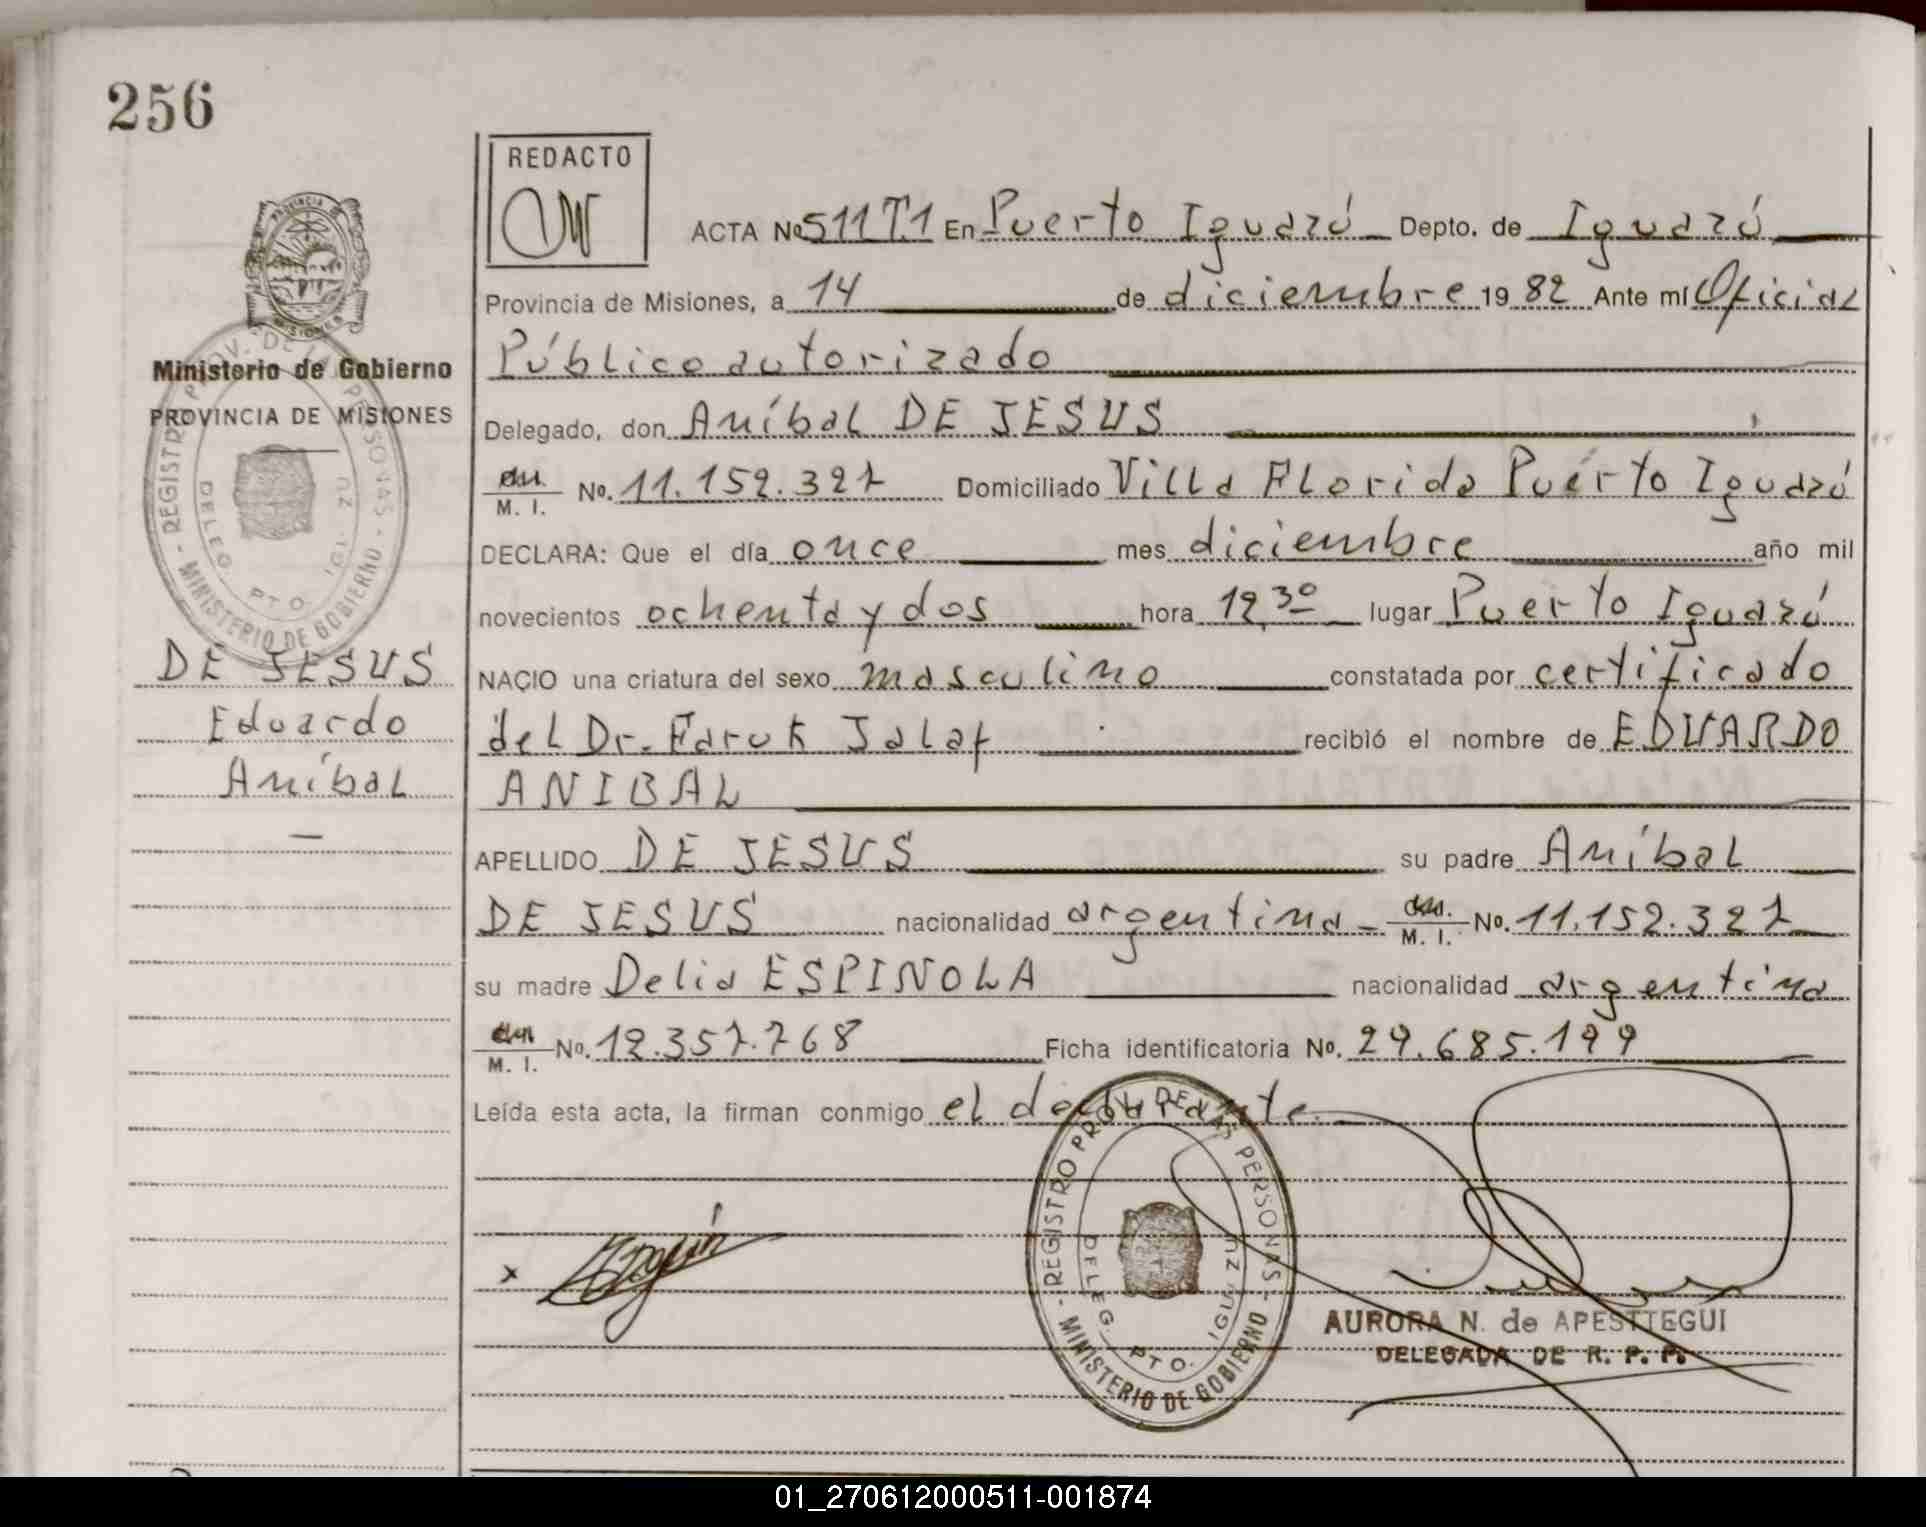 256
REDACTO
ACTA Nº 511 T.1 En Puerto Iguazú Depto. de Iguazú
Provincia de Misiones, a 14 de diciembre 19 82 Ante mí Oficial
Público autorizado
Ministerio de Gobierno
PROVINCIA DE MISIONES
Delegado, don Aníbal DE JESUS
M. I. No. 11.152.327 Domiciliado Villa Florida Puerto Iguazú
DECLARA: Que el día once mes diciembre año mil
novecientos ochenta y dos hora 12,30 lugar Puerto Iguazú
DE JESUS
Eduardo
Aníbal
NACIO una criatura del sexo masculino constatada por certificado
del Dr. Faruk Jalaf recibió el nombre de EDUARDO
ANIBAL
APELLIDO DE JESUS su padre Aníbal
DE JESUS nacionalidad argentina - M. I. No. 11.152.327
su madre Delia ESPINOLA nacionalidad argentina
M. I. No. 12.357.768 Ficha identificatoria No. 29.685.199
Leída esta acta, la firman conmigo el declarante.
x
REGISTRO PROV. DE LAS PERSONAS - MINISTERIO DE GOBIERNO -
DELEG. PTO. IGUAZU
AURORA N. de APESTTEGUI
DELEGADA DE R. P. P.
REGISTRO PROV. DE LAS PERSONAS - MINISTERIO DE GOBIERNO -
DELEG. PTO. IGUAZU
01_270612000511-001874